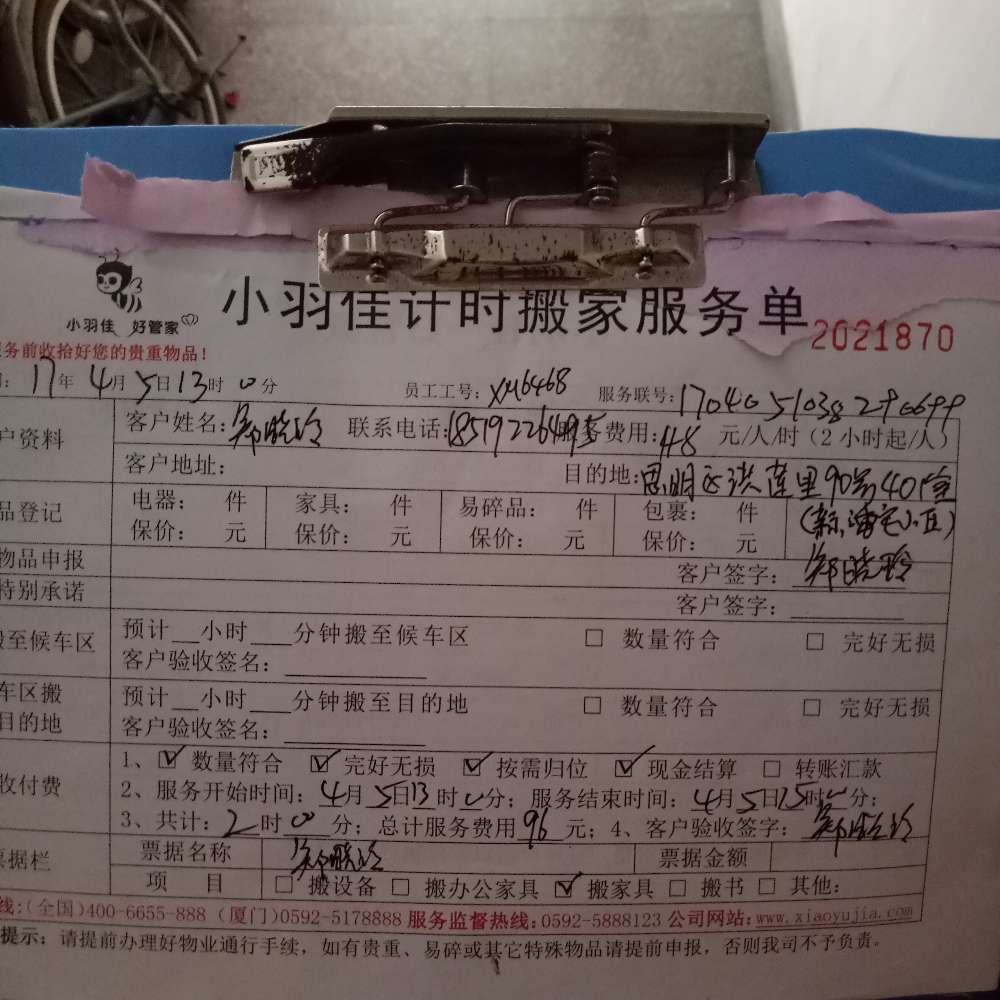 小羽佳 好管家
小羽佳计时搬家服务单
2021870
务前收拾好您的贵重物品！
17年4月5日13时0分 员工工号：XM6468 服务联号：
户资料 客户姓名：郑晓玲 联系电话： 服务费用：48 元/人/时（2小时起/人）
客户地址： 目的地：思明区洪莲里90号401室
品登记 电器： 件 家具： 件 易碎品： 件 包裹： 件
保价： 元 保价： 元 保价： 元 保价： 元
物品申报 客户签字：郑晓玲
特别承诺 客户签字：
搬至候车区 预计__小时___分钟搬至候车区 □ 数量符合 □ 完好无损
客户验收签名：
车区搬 预计__小时___分钟搬至目的地 □ 数量符合 □ 完好无损
目的地 客户验收签名：
收付费 1、☑ 数量符合 ☑ 完好无损 ☑ 按需归位 ☑ 现金结算 □ 转账汇款
2、服务开始时间：4月5日13时0分；服务结束时间：4月5日15时0分；
3、共计：2时0分；总计服务费用96元；4、客户验收签字：郑晓玲
票据栏 票据名称 郑晓玲 票据金额
项 目 □ 搬设备 □ 搬办公家具 ☑ 搬家具 □ 搬书 □ 其他：
线：(全国)400-6655-888（厦门)0592-5178888 服务监督热线：0592-5888123 公司网站：www.xiaoyujia.com
提示：请提前办理好物业通行手续，如有贵重、易碎或其它特殊物品请提前申报，否则我司不予负责。